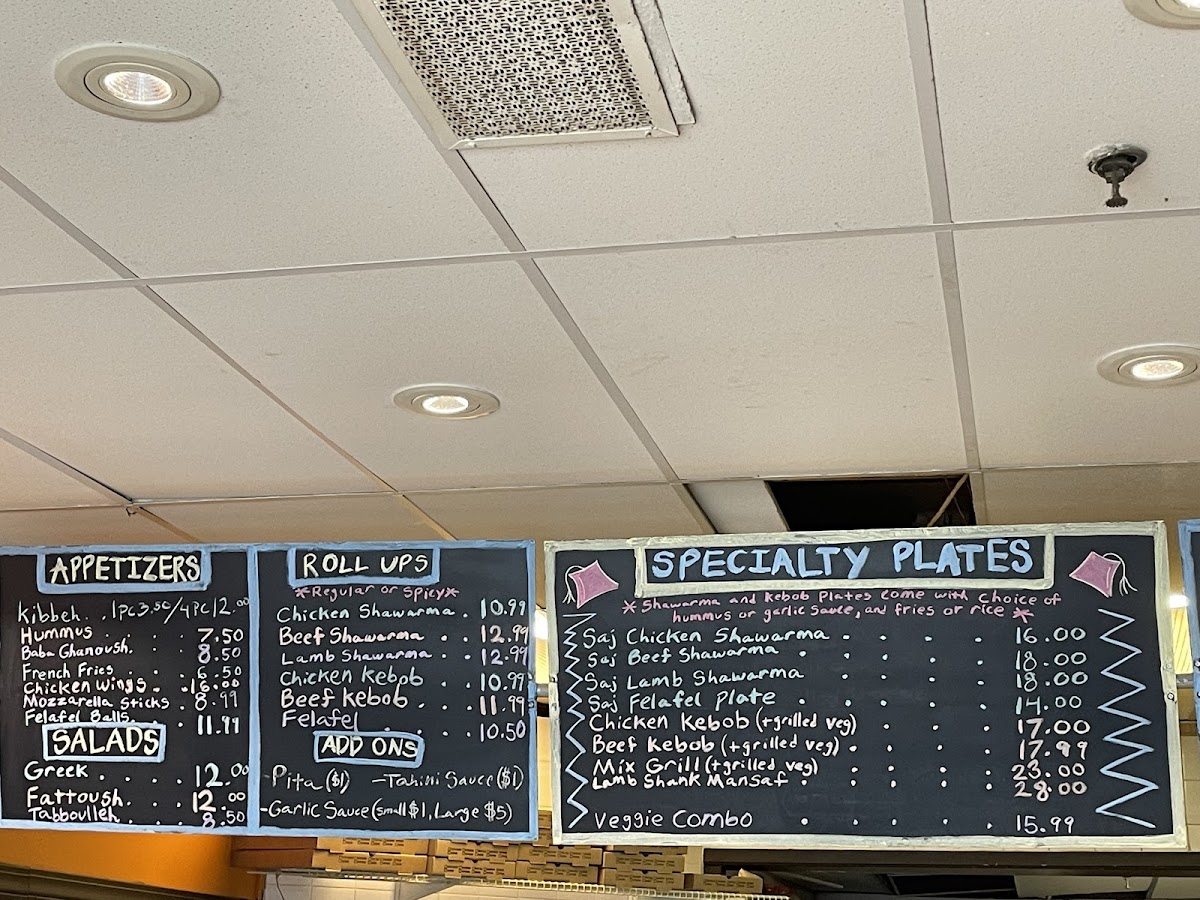 APPETIZERS
Kibbeh. . 1pc 3.50/4pc 12.00
Hummus . . . . 7.50
Baba Ghanoush. . . 8.50
French Fries . . . 6.50
Chicken wings. . 16.00
Mozzarella Sticks . 8.99
Felafel Balls. . . 11.99
SALADS
Greek . . . . 12.00
Fattoush. . . 12.00
Tabboulleh. . . 8.50
ROLL UPS
*Regular or Spicy*
Chicken Shawarma . 10.99
Beef Shawarma . . 12.99
Lamb Shawarma . . 12.99
Chicken Kebob . . 10.99
Beef Kebob . . . 11.99
Felafel . . . 10.50
ADD ONS
-Pita ($1) -Tahini Sauce ($1)
-Garlic Sauce (small $1, Large $5)
SPECIALTY PLATES
*Shawarma and Kebob Plates come with choice of
hummus or garlic sauce, and fries or rice *
Saj Chicken Shawarma . . . . . 16.00
Saj Beef Shawarma . . . . . 18.00
Saj Lamb Shawarma . . . . . 18.00
Saj Felafel Plate . . . . . 14.00
Chicken Kebob (+grilled veg) . . . . 17.00
Beef Kebob (+grilled veg) . . . . 17.99
Mix Grill (+grilled veg) . . . . 23.00
Lamb Shank Mansaf . . . . . 28.00
Veggie Combo . . . . . 15.99